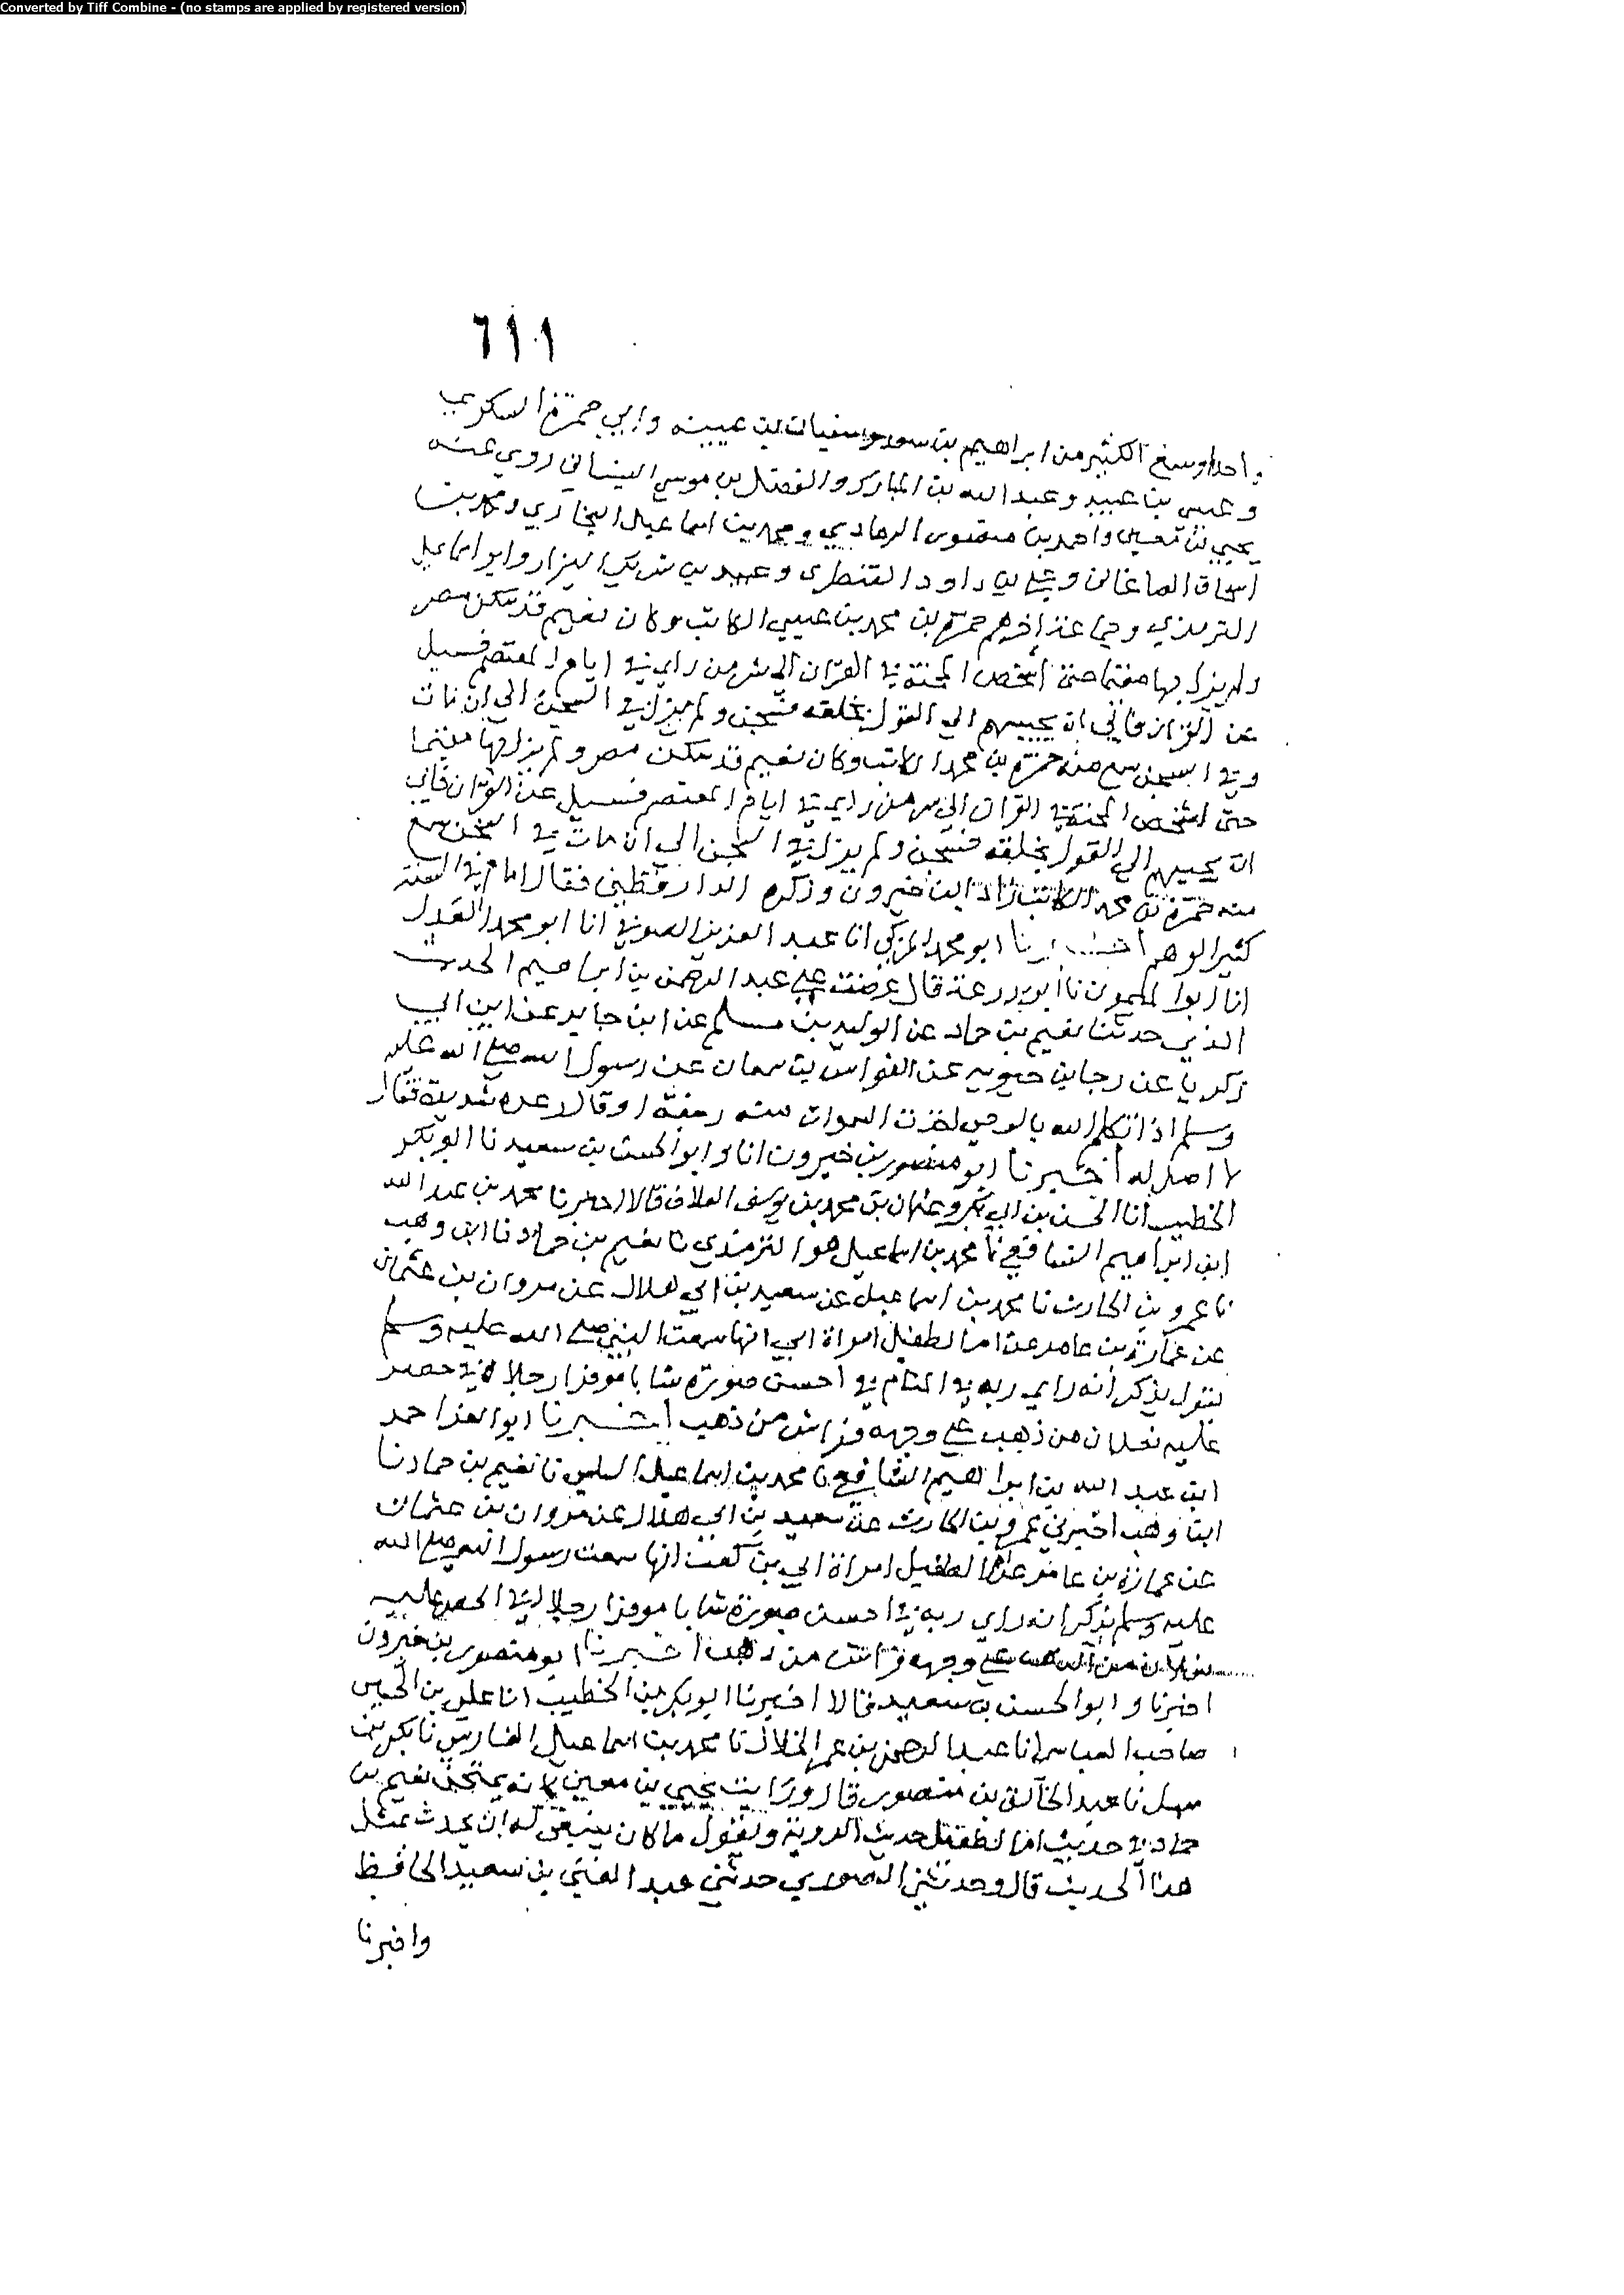 Converted by Tiff Combine - (no stamps are applied by registered version)
٦١١
واحدا وسمع الكثير من ابراهيم بن سعد وسفيان بن عيينه وابي حمزة السكري
وعيسى بن عبيد وعبد الله بن المبارك والفضل بن موسي السيناني روي عنه
يحيي بن معين واحمد بن منصور الرمادي ومحمد بن اسماعيل البخاري ومحمد بن
اسحاق الصاغاني وعلي بن داود القنطرى وعبيد بن شريك البزار وابو اسماعيل
الترمذي وجماعة اخرهم حمزة بن محمد بن عيسي الكاتب وكان نعيم قد سكن مصر
ولم يزل بها مقيما حتى اشخص المحنة في القران الي سر من راي في ايام المعتصم فسيل
عن القران فابي ان يجيبهم الي القول بخلقه فسجن ولم يزل في السجن الي ان مات
وفي السجن سمع منه حمزة بن محمد الكاتب وكان نعيم قد سكن مصر ولم يزل بها مقيما
حتى اشخص المحنة في القران الي سر من راي في ايام المعتصم فسيل عن القران فابي
ان يجيبهم الي القول بخلقه فسجن ولم يزل في السجن الي ان مات في السجن سمع
منه حمزة بن محمد الكاتب زاد ابن خيرون وذكره الدارقطني فقال امام في السنة
كثير الوهم اخبرنا ابو محمد المزكي انا عبد العزيز الصوفي انا ابو محمد العدل
انا ابو الميمون نا ابو زرعة قال عرضت علي عبد الرحمن بن ابراهيم الحديث
الذي حدثنا نعيم بن حماد عن الوليد بن مسلم عن ابن جابر عن ابن ابي
زكريا عن رجا بن حيويه عن النواس بن سمعان عن رسول الله صلي الله عليه
وسلم اذا تكلم الله بالوحي اخذت السموات منه رجفة او قال رعدة شديدة فقال
لا اصل له اخبرنا ابو منصور بن خيرون انا وابو الحسن بن سعيد نا ابو بكر
الخطيب انا الحسن بن ابي بكر وعثمان بن محمد بن يوسف العلاف قالا اخبرنا محمد بن عبد الله
ابن ابراهيم الشافعي نا محمد بن اسماعيل هو الترمذي نا نعيم بن حماد نا ابن وهب
نا عمرو بن الحارث نا محمد بن اسماعيل عن سعيد بن ابي هلال عن مروان بن عثمان
عن عمارة بن عامر عن ام الطفيل امراة ابي انها سمعت النبي صلي الله عليه وسلم
يقول يذكر انه راي ربه في المنام في احسن صورة شابا موفرا رجلاه في خضر
عليه نعلان من ذهب علي وجهه فراش من ذهب اخبرنا ابو العز احمد
ابن عبد الله بن ابراهيم الشافعي نا محمد بن اسماعيل السلمي نا نعيم بن حماد نا
ابن وهب اخبرني عمرو بن الحارث عن سعيد بن ابي هلال عن مروان بن عثمان
عن عمارة بن عامر عن ام الطفيل امراة ابي بن كعب انها سمعت رسول الله صلي الله
عليه وسلم يذكر انه راي ربه في احسن صورة شابا موفرا رجلاه في الخضر عليه
نعلان من الذهب علي وجهه فراش من ذهب اخبرنا ابو منصور بن خيرون
اخبرنا وابو الحسن بن سعيد قالا اخبرنا ابو بكر بن الخطيب انا علي بن الحسين
صاحب العباسي انا عبد الرحمن بن عمر الخلال نا محمد بن اسماعيل الفارسي نا بكر بن
سهل نا عبد الخالق بن منصور قال ورايت يحيي بن معين كانه يهجن نعيم بن
حماد في حديث ام الطفيل حديث الروية ويقول ما كان ينبغي له ان يحدث بمثل
هذا الحديث قال وحدثني الصوري حدثني عبد الغني بن سعيد الحافظ
واخبرنا